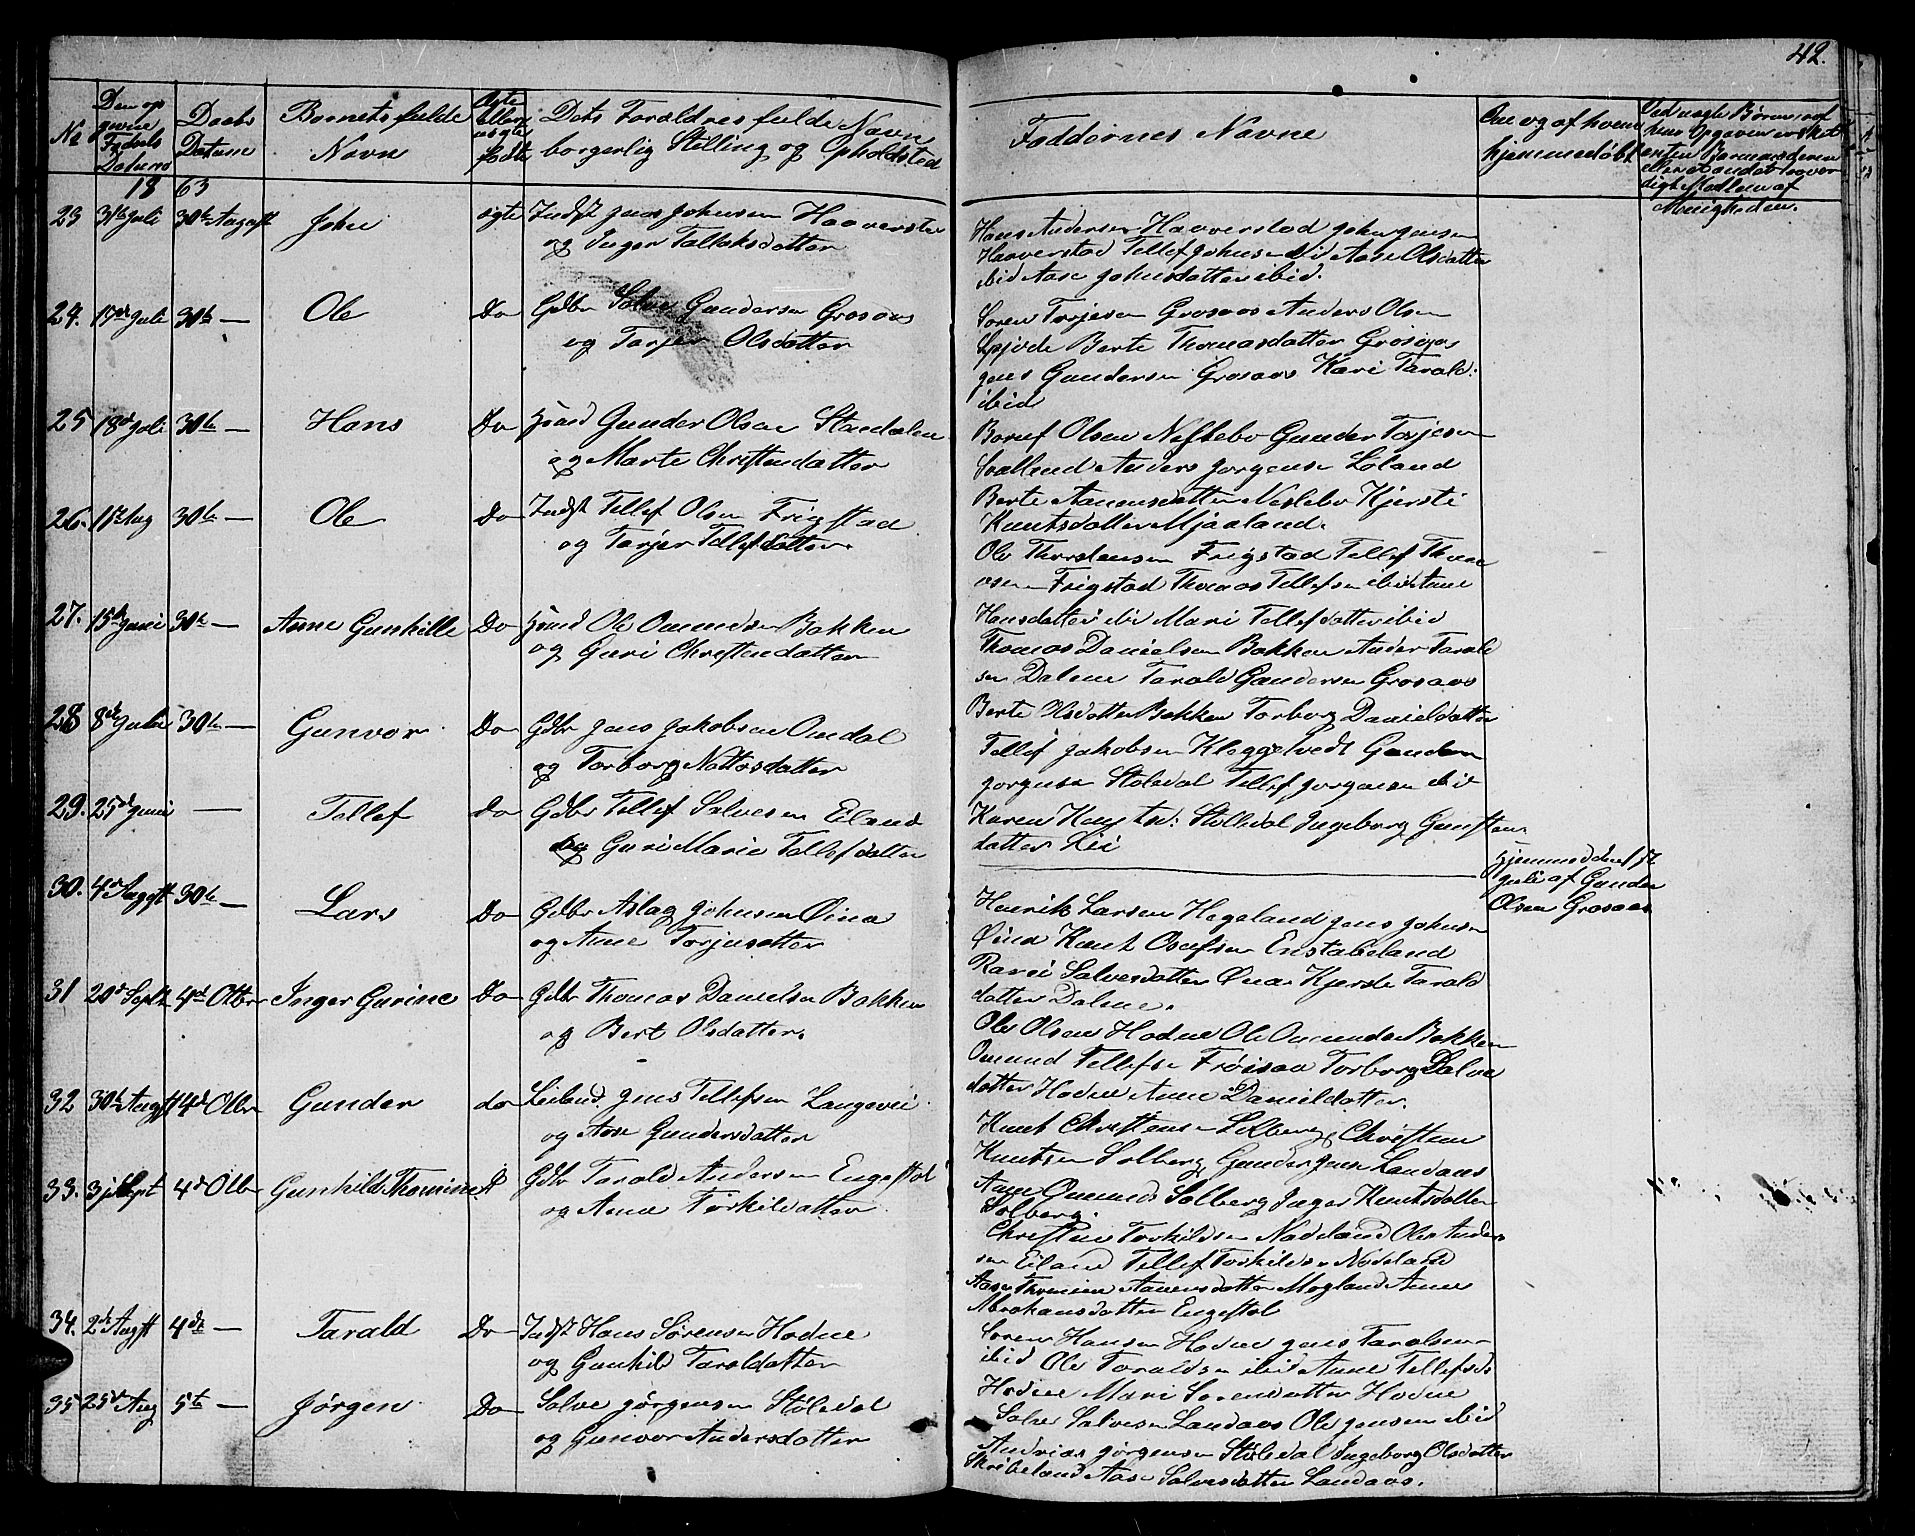 42.
No
Den op
givne
Fødsels
Datum
Daabs
Datum
Barnets fulde
Navn
Ægte
eller
uægte
født
Dets Forældres fulde Navn
borgerlig Stilling og Opholdsted
Faddernes Navne
Om og af hvem
hjemmedøbt
Ved uægte Børn
1863
23 31te Juli 30te August John ægte Indst Jens Johnsen Haaverstad
og Inger Tallaksdatter
Hans Andersen Haaverstad John Jensen
Haaverstad Tellef Johnsen ibid Aase Olsdatter
ibid Aase Johnsdatter ibid.
24. 17de Juli 30te — Ole Do Gdbr Salve Gundersen Grosaas
og Torjer Olsdatter
Soren Torjesen Grosaas Anders Olsen
Berte Thomasdatter Grosaas
Jens Gundersen Grosaas Kari Tarald:
ibid
25 18de Juli 30te — Hans Do Gunder Olsen
og Marte Christensdatter
Olsen Neslebo Gunder Torjesen
Anders Jørgensen Løland
Berte Aanensdatter Neslebo Kjersti
Knutsdatter Mjaaland.
26. Aug 30te — Ole Do Indst Tellef Olsen Frigstad
og Torjer Tellefsdatter
Ole Thorstensen Frigstad Tellef Thom
asen Frigstad Thomas Tellefsen ibid Anne
Hansdatter ibi Mari Tellefsdatter ibid
27. 15de Juni 30te — Anne Gunhille Do Ole Omundsen Bakken
og Guri Christensdatter
Thomas Danielsen Bakken Anders Tarald
sen Dalene Tarald Gundersen Grosaas
Berte Olsdatter Bakken Torborg Danielsdatter
28 8de 30te — Gunvor Do Gdbr Jens Jakobsen Omdal
og Torborg
Tellef Jakobsen Kleggetvedt Gunder
Jørgensen Stoledal Tellef Jørgensen ibid
Karen Stoledal Ingeborg Gunsten
datter Lie
29. 25de Juni — Tellef Do Gdbr Tellef Salvesen Eiland
og Guri Marie Tellefsdatter
Hjemmedøbt
Juli af Gunder
Olsen Grosaas
30. 4de Augst 30te — Lars Do Gdbr Aslag Johnsen Øina
og Anne
Henrik Larsen Hegeland Jens Johnsen
Øina Knut Osufsen Enstabeland
Salvesdatter Øina Kjersti Tarald
datter Dalene.
31 20de Septb 4de Otbr Inger Gurine Do Gdbr Thomas Danielsen Bakken
og Bert Olsdatter.
Ole Olsen Hodne Ole Omundsen Bakken
Omund Tellefsen Frøisaa Torborg Salve
datter Hodne Anne Danielsdatter.
32 30te Augst 4de Otbr Gunder do Leiland. Jens Tellefsen Langevei
og Aase Gundersdatter
Knut Christensen Solberg, Christen
Knutsen Solberg, Gunder Jensen Landaas
Anne Omunds Solberg Inger Knutsdatter
Solberg.
33. Sept 4de Otbr Gunhild Thomine Gdbr Tarald Andersen Engestøl
og Anne Torkildsdatter
Christen Torkildsen Nodeland Ole Ander
sen Eiland Tellef Torkildsen Nodeland
Aase Thomine Aanensdatter Mogland Anne
Abrahamsdatter Engestøl
34. 2de Augst 4de — Tarald Do Indst Hans Sørensen Hodne
og Gunhild Taraldsdatter
Soren Hansen Hodne Jens Taralsen
ibid Ole Taraldsen ibid Anne Tellefsd:
Hodne Mari Sorensdatter Hodne
35 25de Aug 5te — Jørgen Do Salve Jørgensen Støledal
og Gunvor Andersdatter
Salve Salvesen Landaas Ole Jensen ibid
Andreas Jørgensen Støledal Ingeborg Olsdatter
Skribeland Aase Salvesdatter Landaas.